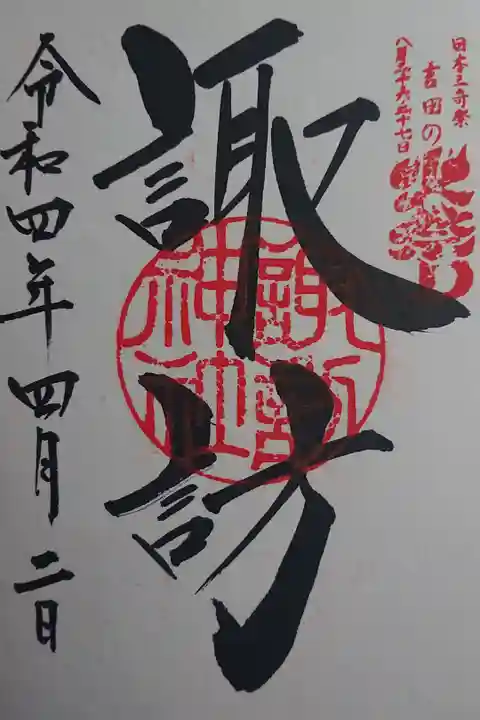 日本三奇祭
吉田の火祭り
八月二十六二十七日
諏訪
諏訪神社
令和四年四月二日